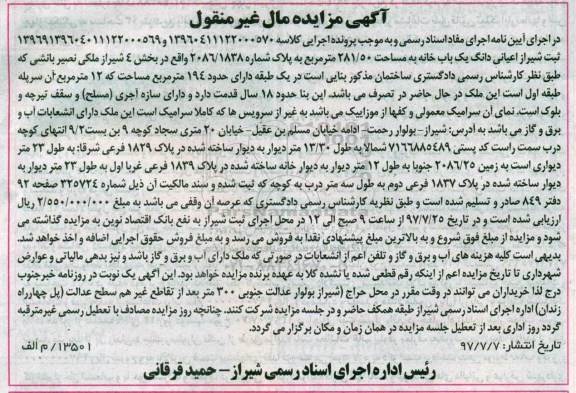 آگهی مزایده مال غیر منقول
در اجرای آیین نامه اجرای مفاد اسناد رسمی و به موجب پرونده اجرایی کلاسه ۱۳۹۶۰۴۰۱۱۱۲۲۰۰۰۵۷۰ و ۱۳۹۶۹۱۳۹۶۰۴۰۱۱۱۲۲۰۰۰۵۶۹
ثبت شیراز اعیانی دانگ یک باب خانه به مساحت ۲۸۱/۵۰ مترمربع به پلاک شماره ۲۰۸۶/۱۸۳۸ واقع در بخش ۴ شیراز ملکی نصیر باتشی که
طبق نظر کارشناس رسمی دادگستری ساختمان مذکور بنایی است در یک طبقه دارای حدود ۱۹۴ مترمربع مساحت که ۱۲ مترمربع آن سرپله
طبقه اول است این ملک در حال حاضر در تصرف می باشد. این بنا حدود ۱۸ سال قدمت دارد و دارای سازه آجری (مسلح) و سقف تیرچه و
بلوک است. نمای آن سرامیک معمولی و کفها از موزاییک می باشد به غیر از سرویس ها که کاملا سرامیک است این ملک دارای انشعابات آب و
برق و گاز می باشد به آدرس: شیراز- بولوار رحمت- ادامه خیابان مسلم بن عقیل- خیابان ۲۰ متری سجاد کوچه ۹ بن بست ۹/۲ انتهای کوچه
درب سمت راست کد پستی ۷۱۶۶۸۸۵۴۸۹ شمالا به طول ۱۳/۳۰ متر دیوار به دیوار ساخته شده در پلاک ۱۸۲۹ فرعی شرقا: به طول ۲۳ متر
دیواری است به زمین ۲۰۸۶/۲۵ جنوبا به طول ۱۲ متر دیوار به دیوار خانه ساخته شده در پلاک ۱۸۳۹ فرعی غربا اول به طول ۲۳ متر دیوار به
دیوار ساخته شده در پلاک ۱۸۳۷ فرعی دوم به طول سه متر درب به کوچه که ثبت شده و سند مالکیت آن ذیل شماره ۳۲۵۷۲۴ صفحه ۹۲
دفتر ۸۴۹ صادر و تسلیم شده است و طبق نظریه کارشناس رسمی دادگستری که عرصه آن وقفی می باشد به مبلغ ۲/۵۵۰/۰۰۰/۰۰۰ ریال
ارزیابی شده است و در تاریخ ۹۷/۷/۲۵ از ساعت ۹ صبح الی ۱۲ در محل اجرای ثبت شیراز به نفع بانک اقتصاد نوین به مزایده گذاشته می
شود و مزایده از مبلغ فوق شروع و به بالاترین مبلغ پیشنهادی نقدا به فروش می رسد و به مبلغ فروش حقوق اجرایی اضافه و اخذ خواهد شد.
بدیهی است کلیه هزینه های آب و برق و گاز و تلفن اعم از انشعابات در صورتی که ملک دارای آب و برق و گاز باشد و نیز بدهی مالیاتی و عوارض
شهرداری تا تاریخ مزایده اعم از اینکه رقم قطعی شده یا نشده کلا به عهده برنده مزایده خواهد بود. این آگهی یک نوبت در روزنامه خبرجنوب
درج لذا خریداران می توانند در وقت مقرر در محل حراج (شیراز بولوار عدالت جنوبی ۳۰۰ متر بعد از تقاطع غیر هم سطح عدالت (پل چهارراه
زندان) اداره اجرای اسناد رسمی شیراز طبقه همکف حاضر و در جلسه مزایده شرکت کنند. چنانچه روز مزایده مصادف با تعطیل رسمی غیرمترقبه
گردد روز اداری بعد از تعطیل جلسه مزایده در همان زمان و مکان برگزار می گردد.
تاریخ انتشار: ۹۷/۷/۷
۱۳۵۰۱/ م الف
رئیس اداره اجرای اسناد رسمی شیراز- حمید قرقانی